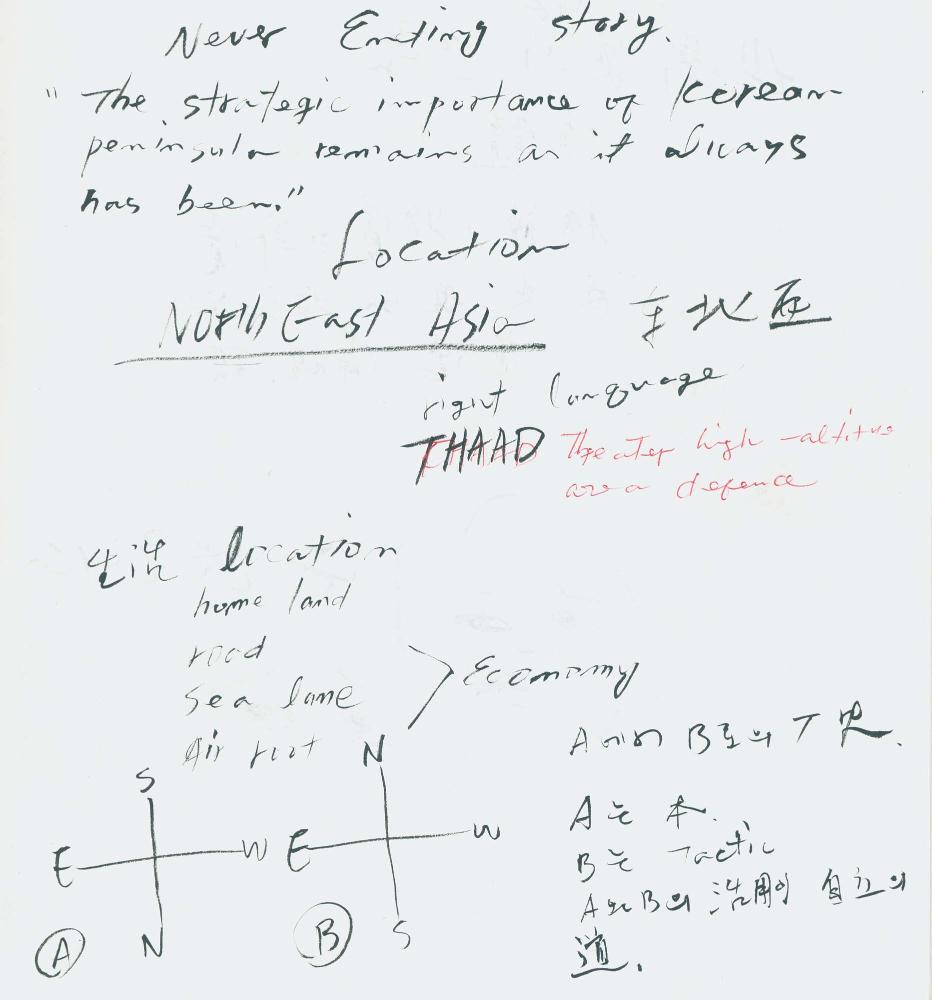 Never Ending story.
"The strategic importance of Korean
peninsula remains as it always
has been."
Location
North East Asia 东北亜
right language
THAAD Theater high-altitue
area defence
生活 location
home land
road
Sea lane
Economy
Air rout
S
E W
N
A
N
E W
S
B
A에서 B로의
A는 本.
B는 Tactic
A와 B의 活用이 自立의
道.